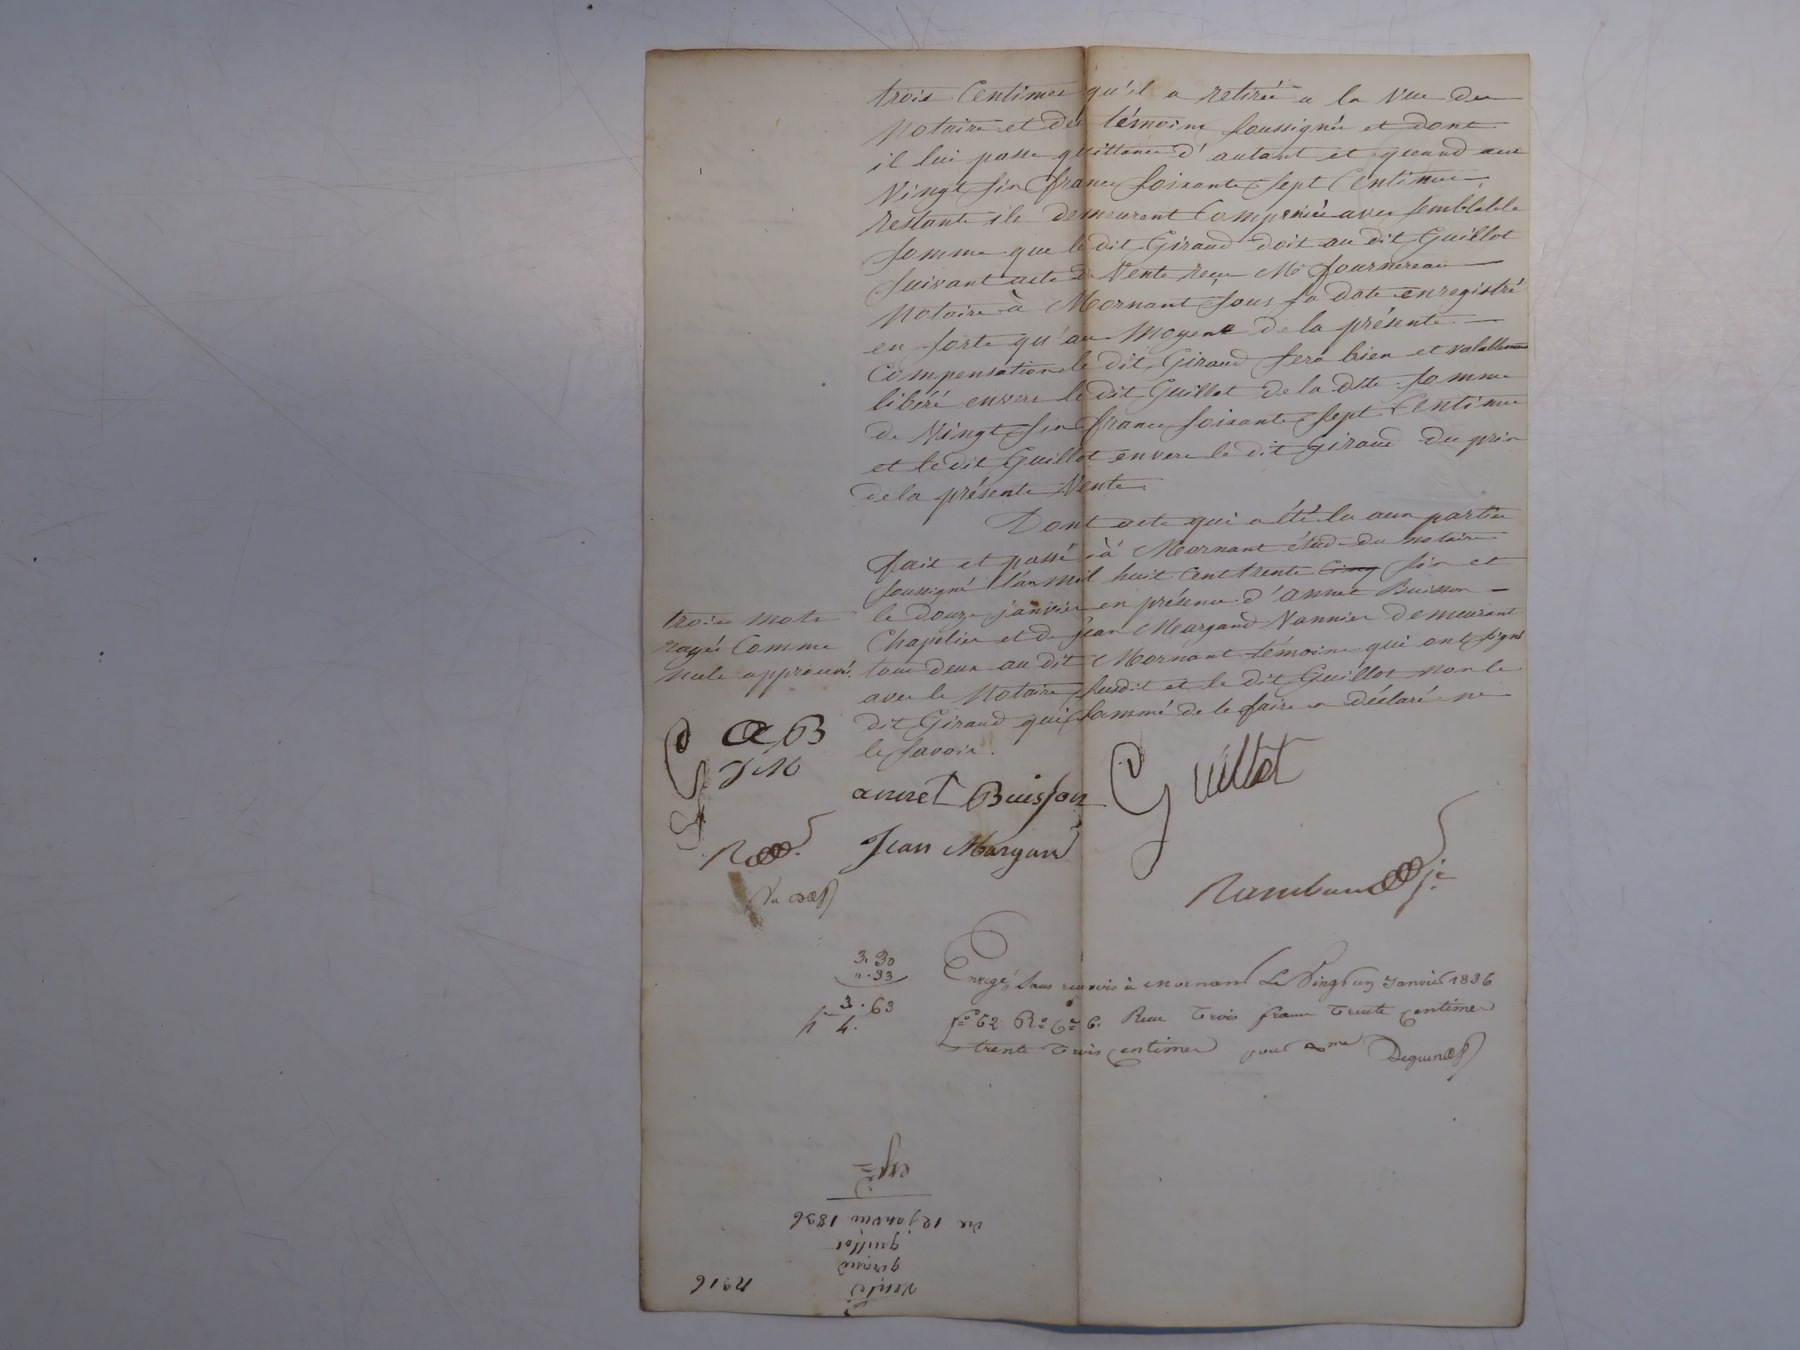 trois Centimes qu'il a retirée a la vue du
Notaire et des témoins soussignés et dont
il lui passe quittance d'autant et quand aux
Vingt six francs soixante sept Centimes
restants ils demeurent Compensés avec semblable
somme que le dit Giraud doit au dit Guillot
suivant acte de Vente reçu Me fournereau
Notaire à Mornant sous sa date enregistré
en sorte qu'au Moyen de la présente
Compensation le dit Giraud sera bien et valablement
libéré envers le dit Guillot de la dite somme
de Vingt six francs soixante sept Centimes
et le dit Guillot envers le dit Giraud du prix
de la présente Vente.
Dont acte qui a été lu aux parties
fait et passé à Mornant étude du notaire
soussigné l'an mil huit cent trente cinq six et
le douze janvier en présence d'annet Buisson
Chapelier et de jean Margand Vannier demeurant
tous deux au dit Mornant témoins qui ont signé
avec le Notaire susdit et le dit Guillot non le
dit Giraud qui sommé de le faire a déclaré ne
le savoir.
trois mots
rayés Comme
nuls approuvés.
G
AB
JM
R
annet Buisson
Guillot
Jean Margand
Rambaud je
3.30
".33
3.63
4.
Enregé sans renvois à Mornant Le Vingt un Janvier 1836
fo 62 Ro Ce 6. Reçu Trois francs Trente Centimes
trente Trois centimes pour xme
Vente
giraud
guillot
du 12 janvier 1836
expd
No 16